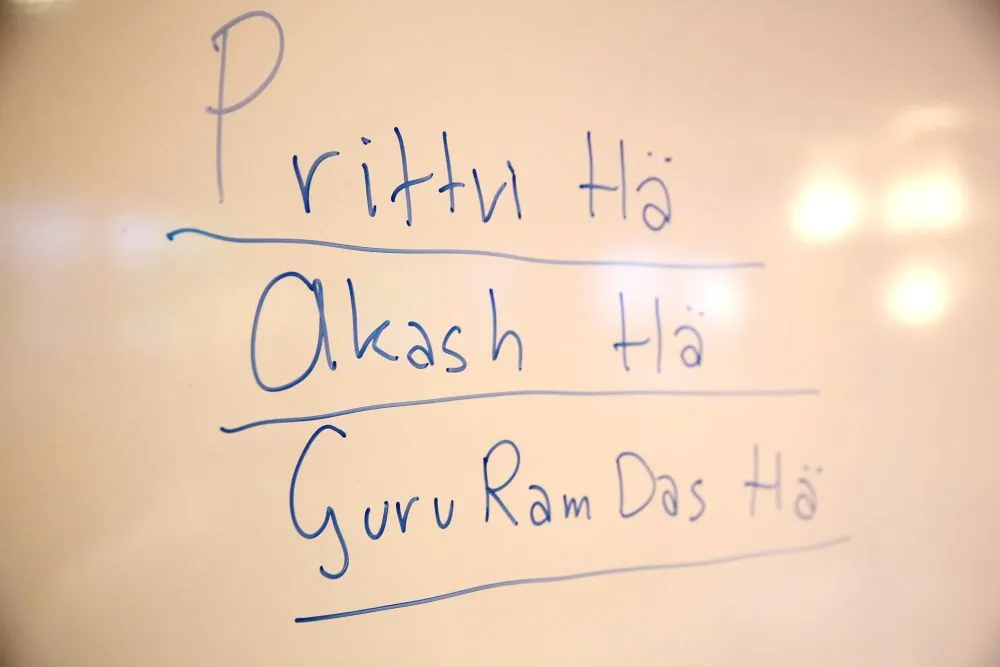 Prittvi Hä
Akash Hä
Guru Ram Das Hä